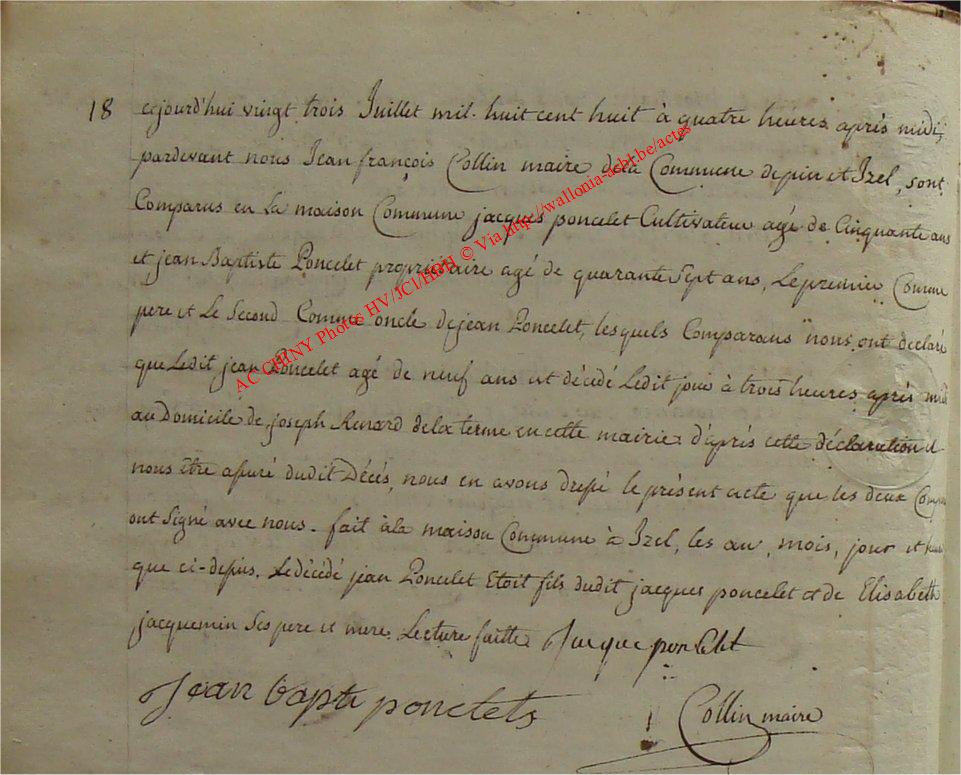 18 cejourd'hui vingt trois Juillet mil huit cent huit à quatre heures après midi,
pardevant nous Jean françois Collin maire dela Commune depin et Izel, sont
Comparus en La maison Commune jacques poncelet Cultivateur agé de Cinquante ans
et jean Baptiste Poncelet propriétaire agé de quarante Sept ans, Le premier Comme
pere et Le Second Comme oncle de jean Poncelet, lesquels Comparans nous ont déclaré
que Ledit jean Poncelet agé de neuf ans est décédé Ledit jour à trois heures après midi
au Domicile de joseph Renard dela terme en cette mairie d'après cette déclaration et
nous être assuré dudit Décés, nous en avons dressé le présent acte que les deux
ont Signé avec nous. fait àla maison Commune à Izel, les an, mois, jour et
que ci-dessus. Le décédé jean Poncelet Etoit fils dudit jacques poncelet et de Elisabeth
jacquemin Ses pere et mere. Lecture faitte Jacque poncelet
Jean bapte poncelets
Collin maire
AC CHINY Photos HV/JCI/HBH © Via http://wallonia-asbl.be/actes